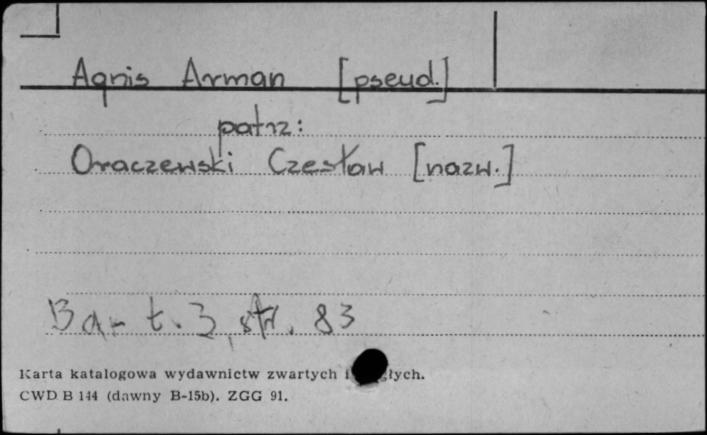 Agnis Arman [pseud.]
patrz:
Oraczewski Czesław [nazw.]
t. 3, str. 83
Karta katalogowa wydawnictw zwartych
CWD B 144 (dawny B-15b). ZGG 91.